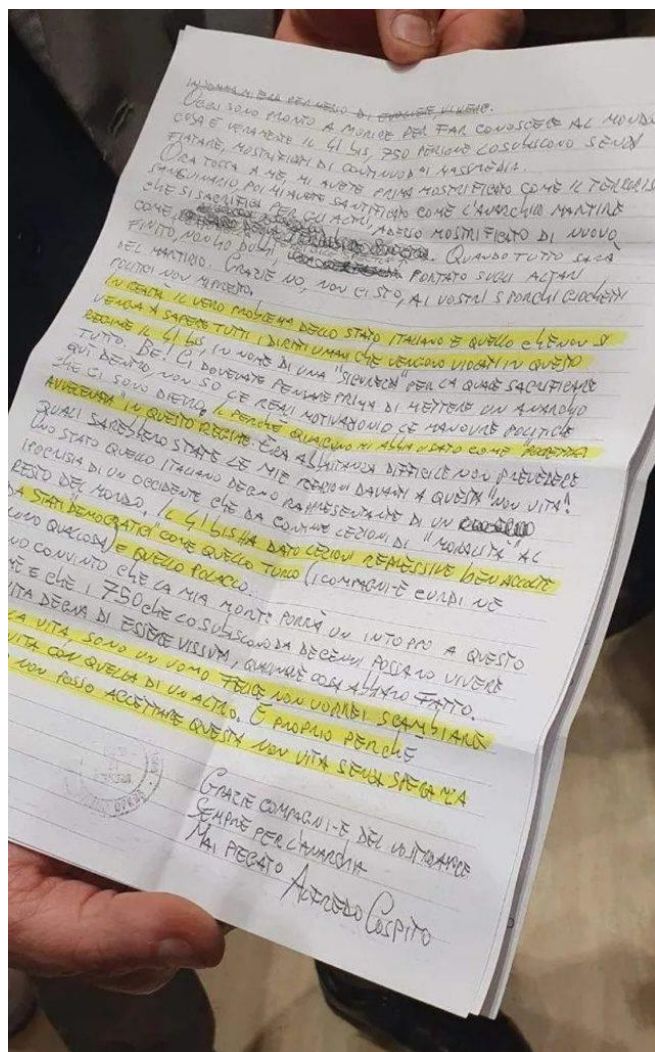 OGGI SONO PRONTO A MORIRE PER FAR CONOSCERE AL MONDO
COSA È VERAMENTE IL 41 BIS, 750 PERSONE LO SUBISCONO SENZA
FIATARE, MOSTRIFICATI DI CONTINUO DAI MASSMEDIA.
ORA TOCCA A ME, MI AVETE PRIMA MOSTRIFICATO COME IL TERRORIS
SANGUINARIO POI MI AVETE SANTIFICATO COME L'ANARCHICO MARTIRE
CHE SI SACRIFICA PER GLI ALTRI, ADESSO MOSTRIFICATO DI NUOVO
COME QUANDO TUTTO SARÀ
FINITO, NON HO DUBBI PORTATO SUGLI ALTARI
DEL MARTIRIO. GRAZIE NO, NON CI STO, AI VOSTRI SPORCHI GIOCHETTI
POLITICI NON MI PRESTO.
IN REALTÀ IL VERO PROBLEMA DELLO STATO ITALIANO È QUELLO CHE NON SI
VENGA A SAPERE TUTTI I DIRITTI UMANI CHE VENGONO VIOLATI IN QUESTO
REGIME IL 41 BIS, IN NOME DI UNA "SICUREZZA" PER LA QUALE SACRIFICARE
TUTTO. BE! CI DOVEVATE PENSARE PRIMA DI METTERE UN ANARCHICO
QUI DENTRO, NON SO LE REALI MOTIVAZIONI O LE MANOVRE POLITICHE
CHE CI SONO DIETRO. IL PERCHÉ QUALCUNO MI ABBIA USATO COME "POLPETTA
AVVELENATA" IN QUESTO REGIME. ERA ABBASTANZA DIFFICILE NON PREVEDERE
QUALI SAREBBERO STATE LE MIE REAZIONI DAVANTI A QUESTA "NON VITA".
UNO STATO QUELLO ITALIANO DEGNO RAPPRESENTANTE DI UN
IPOCRISIA DI UN OCCIDENTE CHE DA CONTINUE LEZIONI DI "MORALITÀ" AL
RESTO DEL MONDO. IL 41 BIS HA DATO LEZIONI REPRESSIVE BEN ACCOLTE
DA STATI "DEMOCRATICI" COME QUELLO TURCO (I COMPAGNI-E CURDI NE
ONO QUALCOSA) E QUELLO POLACCO.
NO CONVINTO CHE LA MIA MORTE PORRÀ UN INTOPPO A QUESTO
ME E CHE I 750 CHE LO SUBISCONO DA DECENNI POSSANO VIVERE
ITA DEGNA DI ESSERE VISSUTA, QUALUNQUE COSA ABBIANO FATTO.
LA VITA, SONO UN UOMO FELICE NON VORREI SCAMBIARE
VITA CON QUELLA DI UN ALTRO. E PROPRIO PERCHÉ
NON POSSO ACCETTARE QUESTA NON VITA SENZA SPERANZA
GRAZIE COMPAGNI-E DEL VOSTRO AMORE
SEMPRE PER L'ANARCHIA
MAI PIEGATO ALFREDO COSPITO